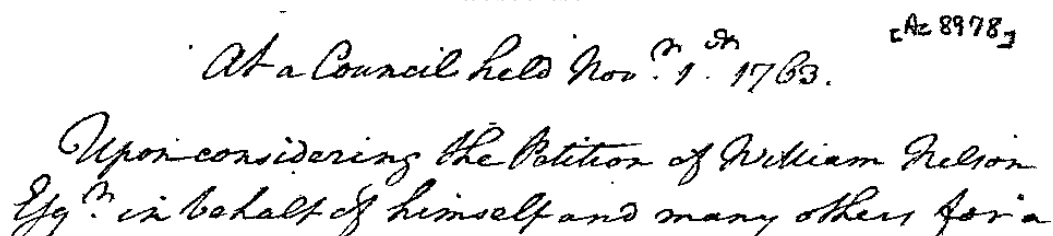 [Ac 8978]
At a Council held Novr. 1st. 1763.
Upon considering the Petition of William Nelson
Esqr. in behalf of himself and many others for a